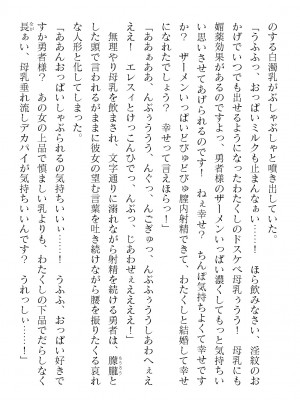 のする白濁乳がぶしゃぶしゃと噴き出していた。
「うふふっ、おっぱいミルクも止まんなぁい…！　ほら飲みなさい、淫紋のお
かげでいつでも出せるようになったわたくしのドスケベ母乳ぅぅ！　母乳にも
媚薬効果があるのですよっ、勇者様のザーメンいっぱい濃くしてもっと気持ち
いい思いさせてあげられるのです！　ねぇ幸せ？　ちんぽ気持ちよくて幸せです
わよねっ？　ザーメンいっぱいどぴゅどぴゅ膣内射精できて、わたくしと結婚して幸せ
になれたでしょうっ？　幸せって言えほらっ！」
「ああぁああ、んぷぅううう、んぐっ、んごぎゅっ、んぶふぅううしあわへぇえ
えええっ！　エレスィとけっこんひでっ、じあわぜぇえええええ！」
　無理やり母乳を飲まされ、文字通りに溺れながら射精を続ける勇者は、朦朧と
した頭で言われるがままに彼女の望む言葉を吐き続けながら腰を振りたくる哀れ
な人形と化してしまった。
「ああんおっぱいしゃぶられるの気持ちいいぃ…！　うふふ、おっぱい好きで
すか勇者様？　あの女の上品で慎ましい乳よりも、わたくしの下品でだらしなく
長ぁい、母乳垂れ流しデカパイが気持ちいいんです？　うれっしぃ……！」